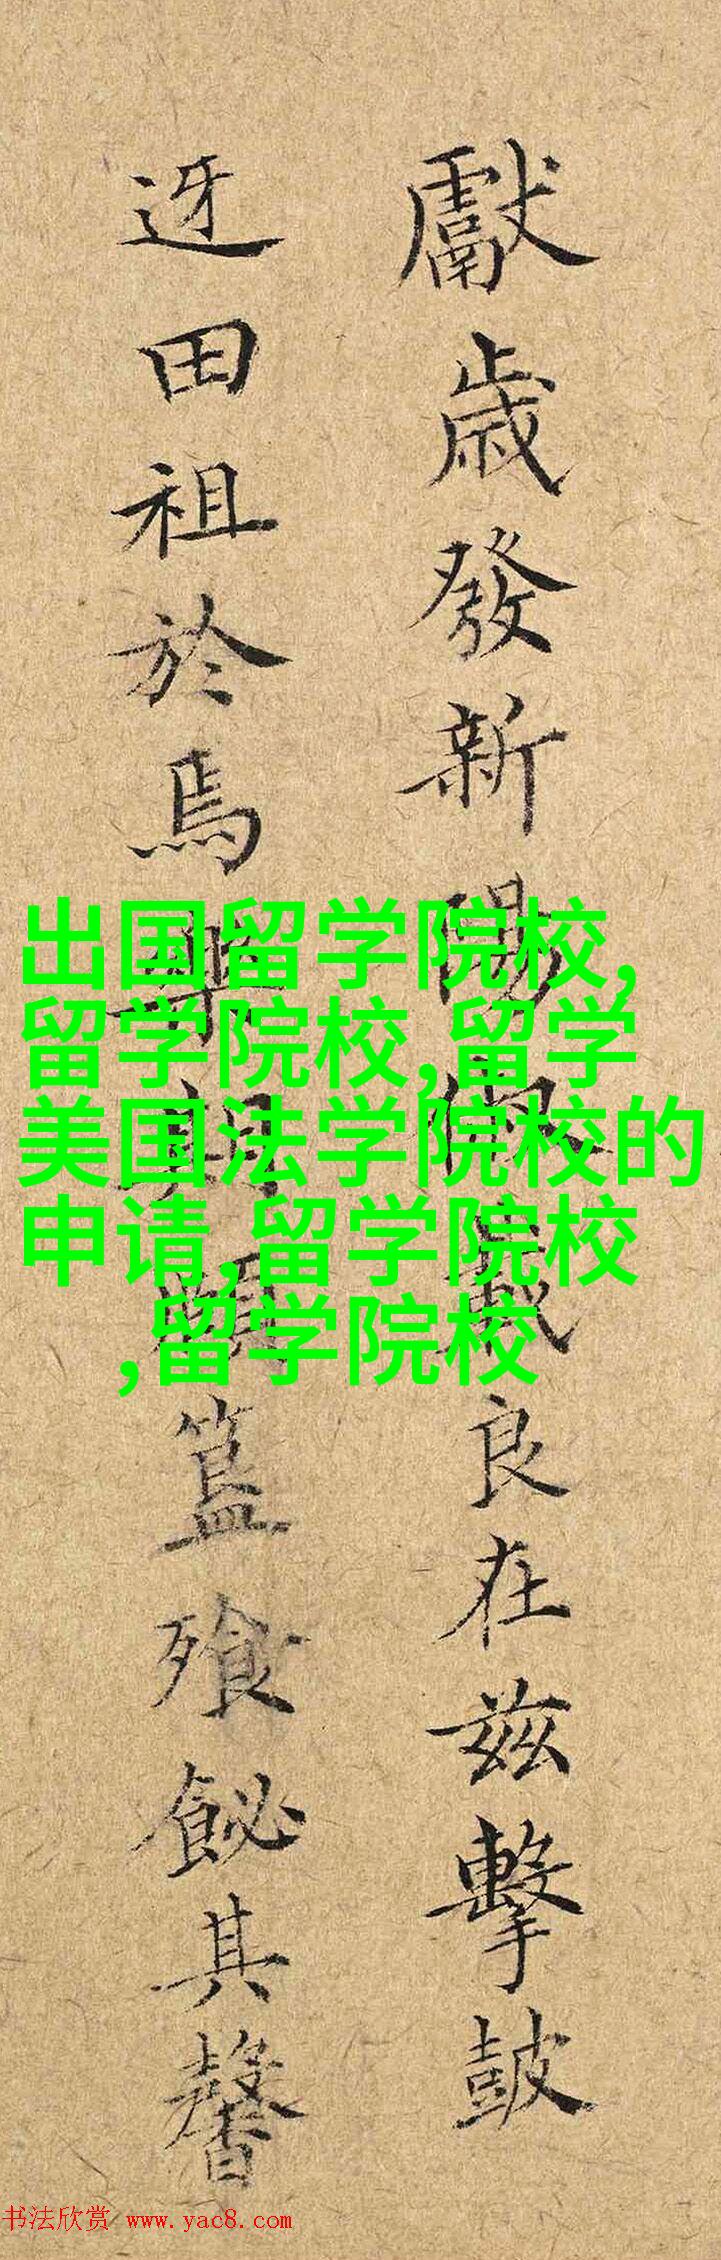 獻歲發新陽俶載良在茲擊鼓
迓田祖於焉樂期頤簋飧飶其馨
出国留学院校,
留学院校,留学
美国法学院校的
申请,留学院校
,留学院校
书法欣赏 www.yac8.com